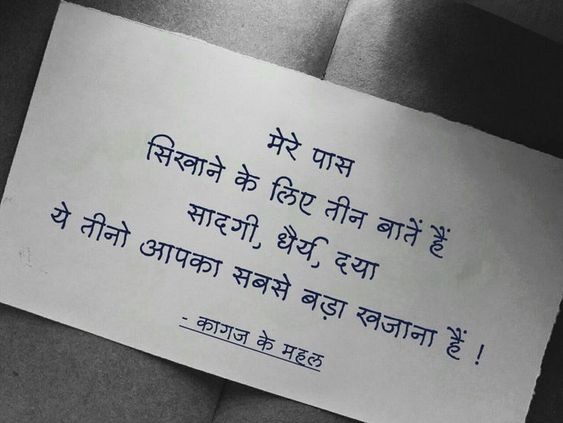 मेरे पास
सिखाने के लिए तीन बातें हैं
सादगी, धैर्य, दया
ये तीनो आपका सबसे बड़ा खजाना हैं !
- कागज के महल